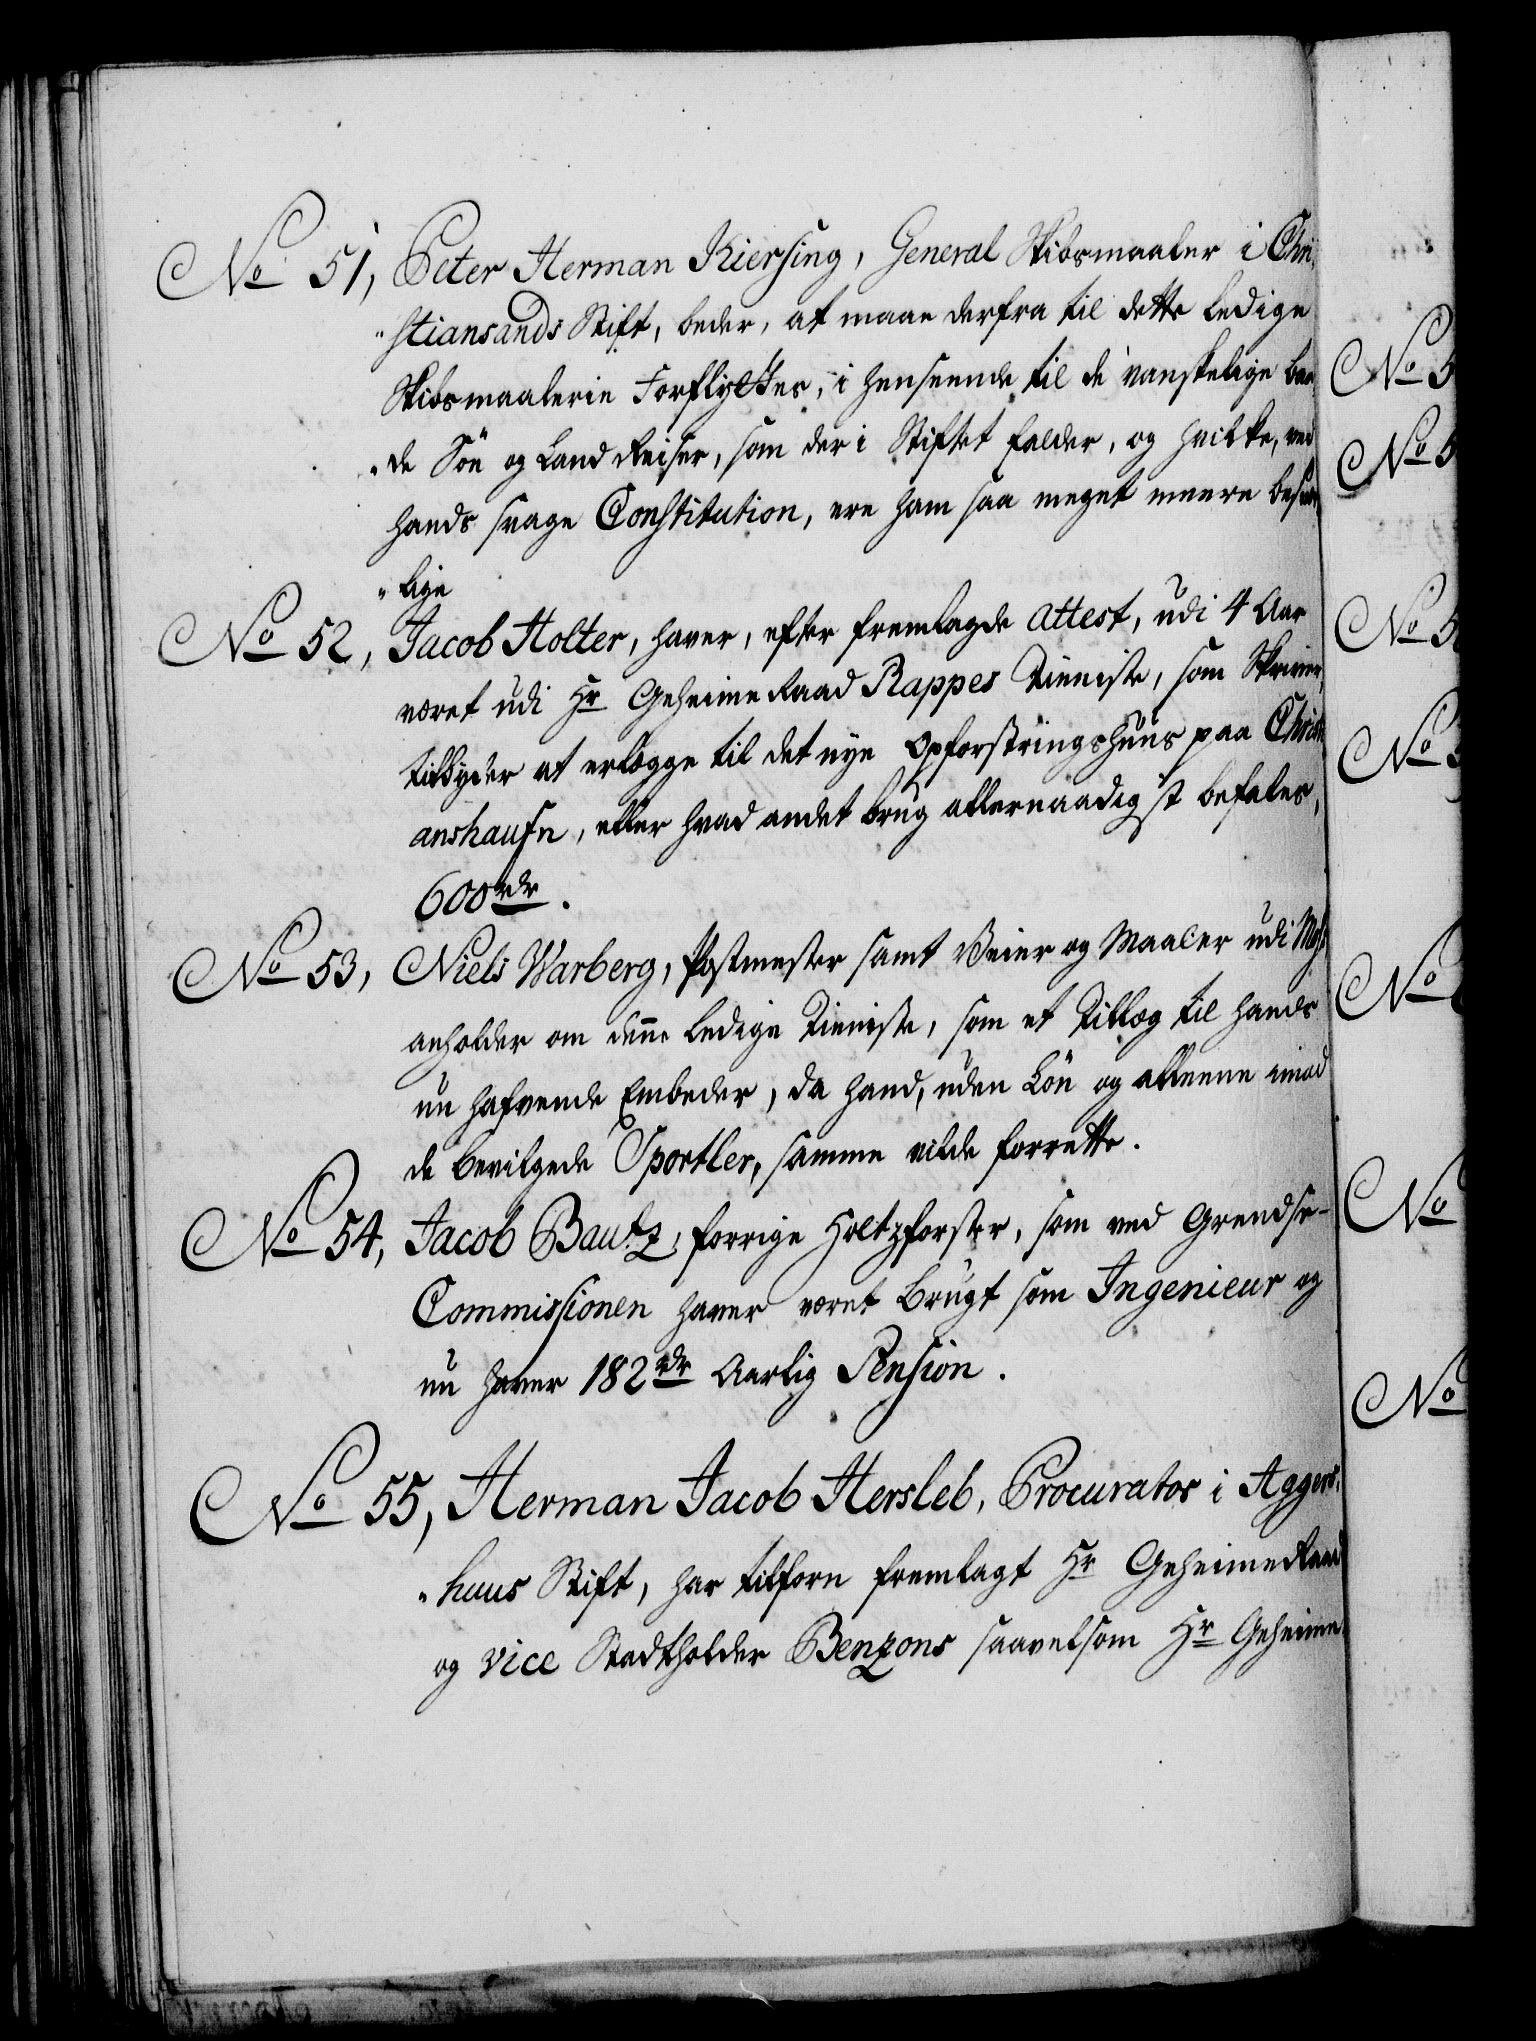 No 51, Peter Herman Kiersing, General Skibsmaaler i Chri¬
"stiansands Stift, beder, at maae derfra til dette ledige
Skibsmaalerie Forflyttes, i henseende til de vanskelige baa¬
"de Söe og Land Reiser, som der i Stiftet falder, og hvilke, ved
hands svage Constitution, ere ham saa meget meere besvær¬
"lige
No 52, Jacob Holter, haver, efter fremlagde attest, udi 4 Aar
været udi Hr Geheime Raad Rappes Tieniste, som Skriver,
tilbyder at erlegge til det nye Opfostringshuus paa Christi¬
anshaufn, eller hvad andet brug allernaadigst befales,
600 rdr.
No 53, Niels Warberg, Postmester samt Veier og Maaler udi
anholder om denne ledige Tieniste, som et Tillæg til hands
nu hafvende Embeder, da hand, uden Lön og alleene imod
de bevilgede Sportler, samme vilde forrette.
No 54, Jacob Bautz, forrige Holtzforster, som ved Grendse-
Commissionen haver været brugt som Ingenieur og
nu haver 182 rdr Aarlig Pension.
No 55, Herman Jacob Hersleb, Procurator i Aggers¬
"huus Stift, har tilforn fremlagt Hr Geheime Raad
og vice Stadtholder Benzons saavelsom Hr Geheime
No 5
No 5
No 5
No 5
No
No
No